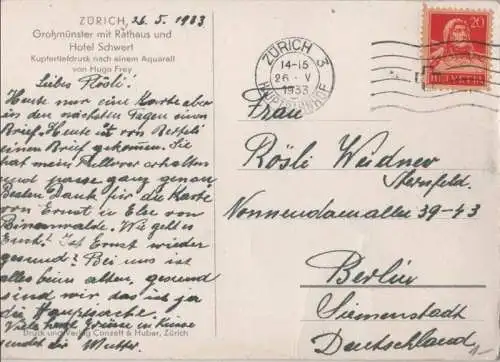 ZÜRICH, 26. 5. 1933
Großmünster mit Rathaus und
Hotel Schwert
Kupfertiefdruck nach einem Aquarell
von Hugo Frey
Liebes Rösli!
Heute nur eine Karte aber
in den nächsten Tagen einen
Brief. Heute ist von
einen Brief gekommen. Sie
hat meine Pullover erhalten
und passe ganz genau
Besten Dank für die Karte
von Ernst u. Else von
Binenwalde. Wie geht es
Euch? Ist Ernst wieder
gesund? Bei uns ist
alles beim alten, gesund
sind wir, das ist ja
die Hauptsache.
Viele herzl Grüsse in Kürze
sendet die Mutter.
Druck und Verlag Conzett & Huber, Zürich
ZÜRICH 3
14-15
26. V
1933
HAUPTBAHNHOF
20
HELVETIA
Frau
Rösli Weidner
Sternfeld.
Nonnendamallee 39-43
Berlin
Siemenstadt
Deutschland